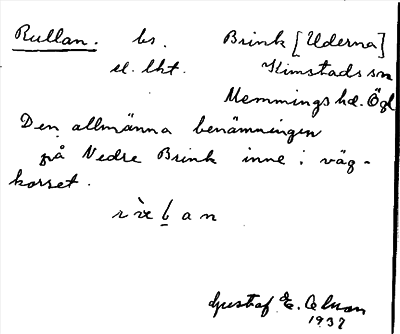 Rullan. bs. Brink [Uderna]
el. lht. Kimstads sn
Memmings hd. Ögl
Den allmänna benämningen
på Nedre Brink inne i väg-
korset.
Gustaf E.